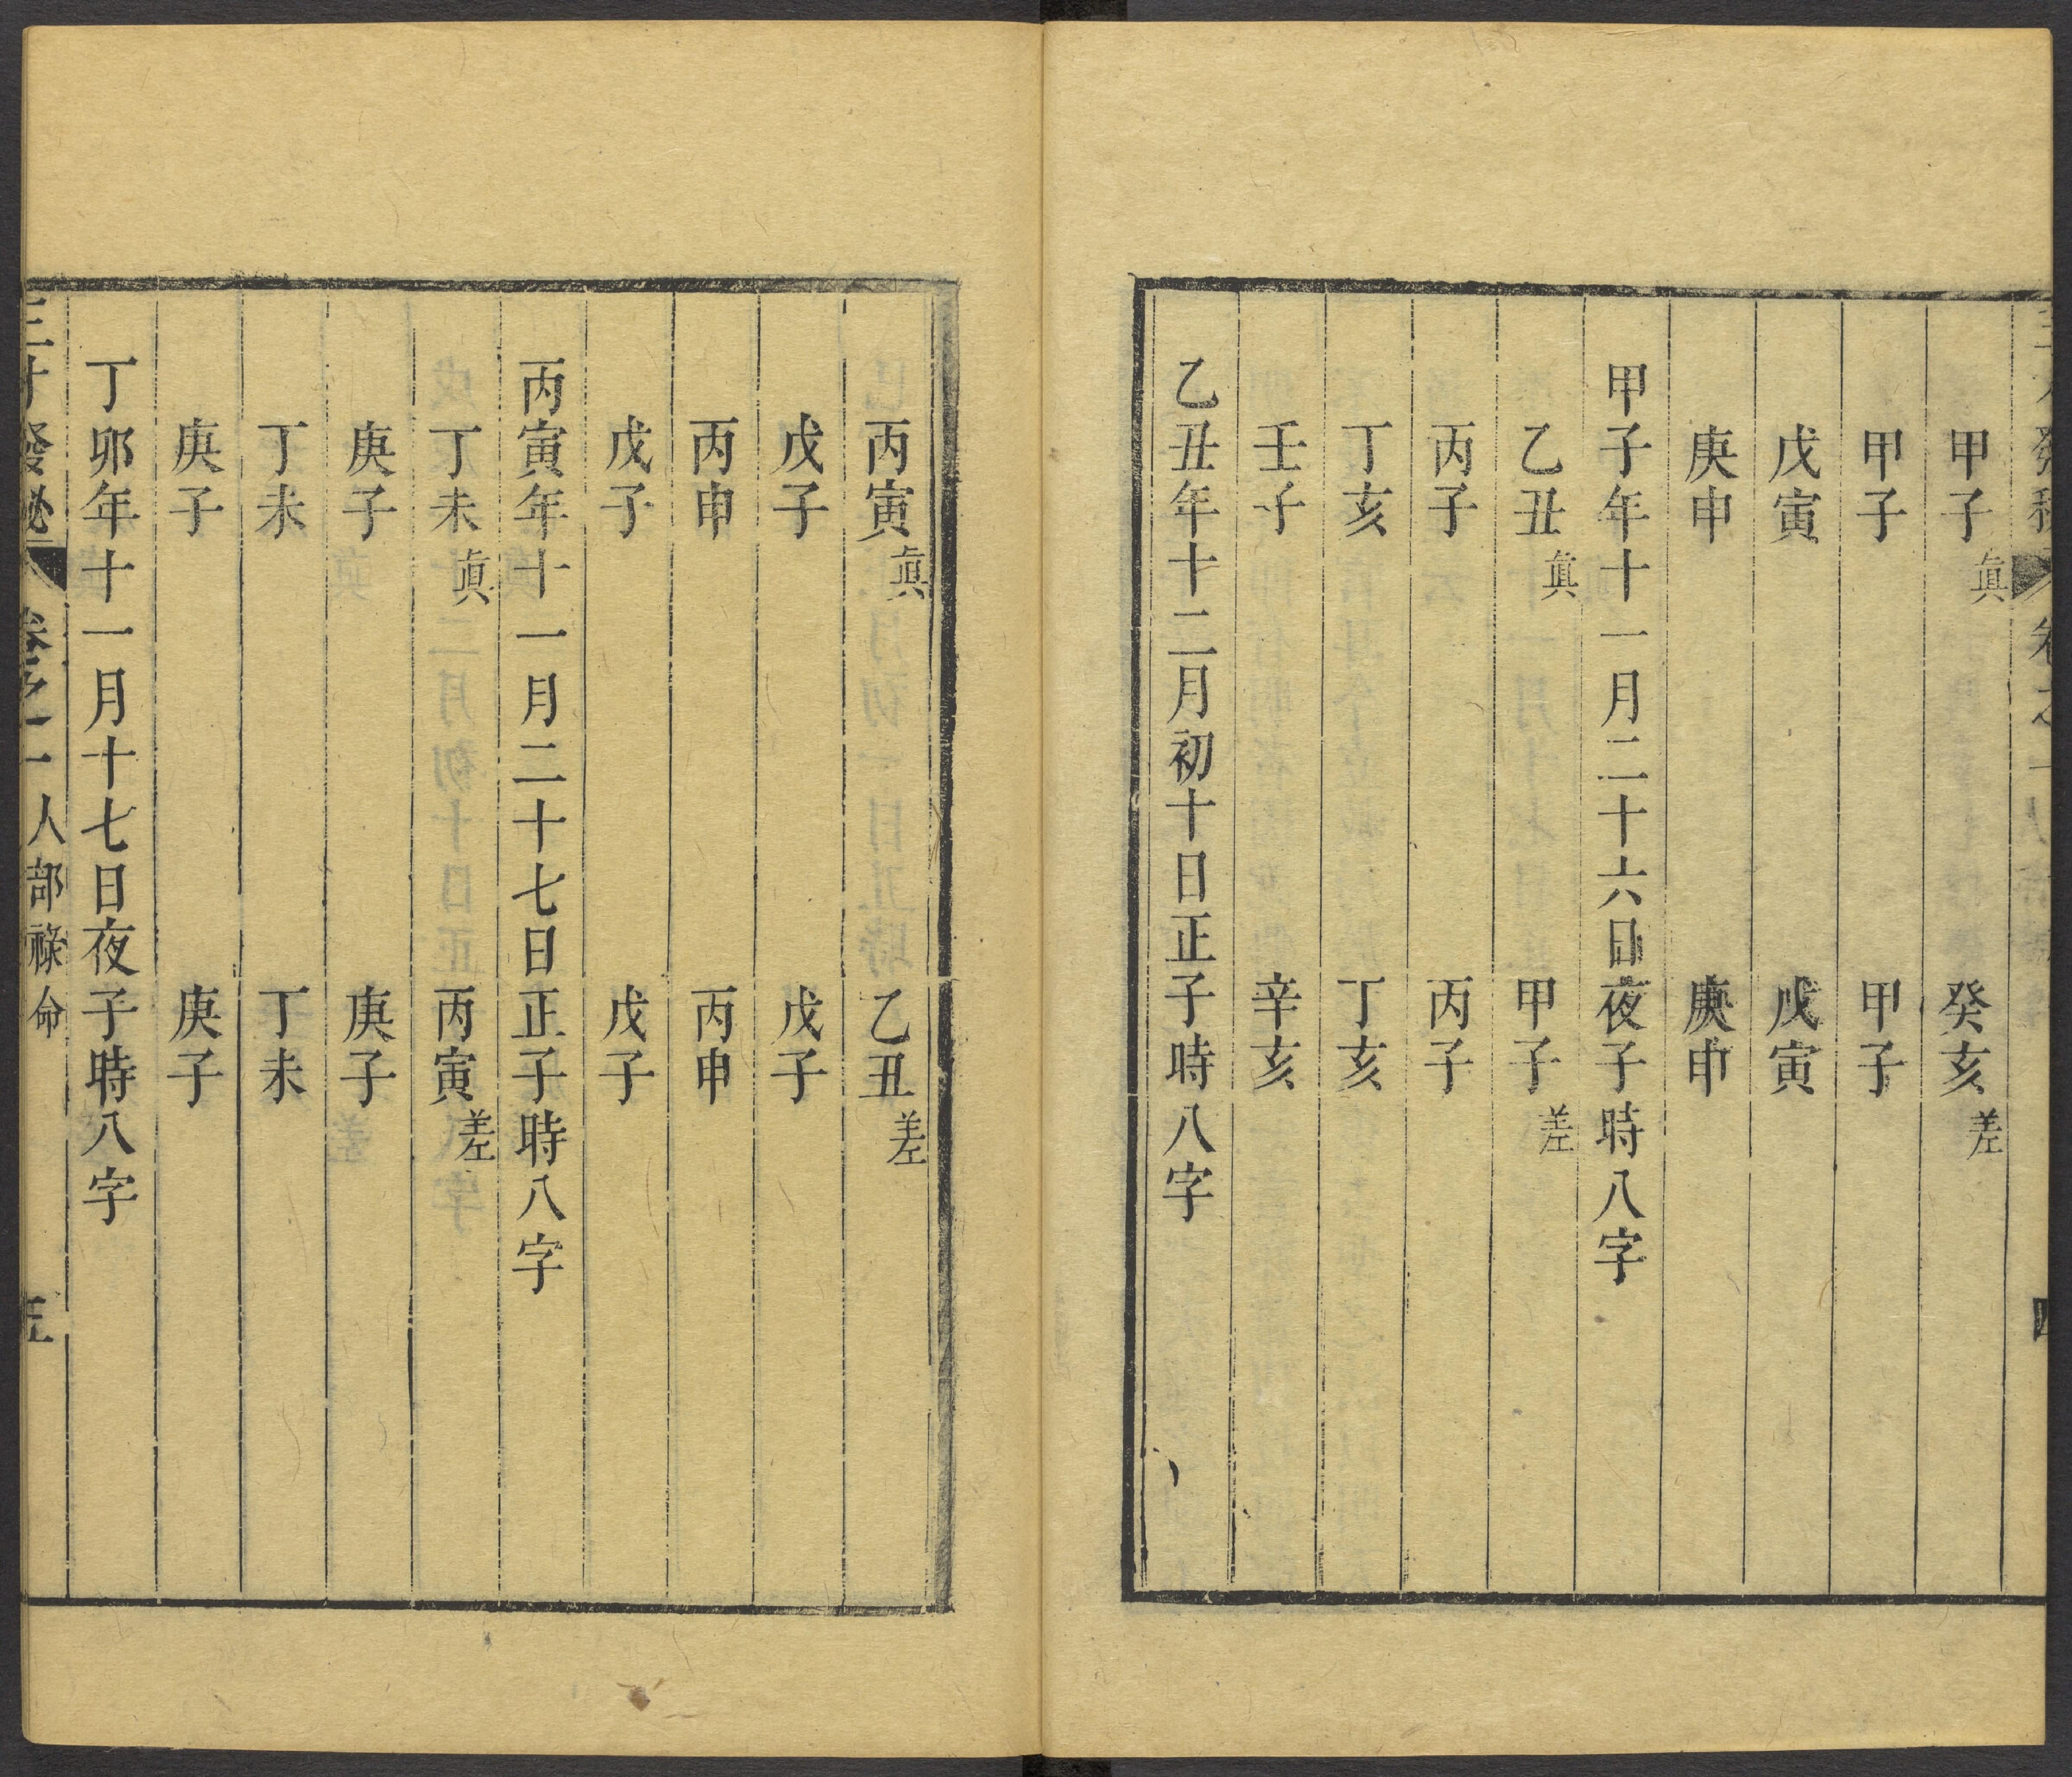 甲子 眞 癸亥 差
甲子 甲子
戊寅 戊寅
庚申 庚申
甲子年十一月二十六日夜子時八字
乙丑 眞 甲子 差
丙子 丙子
丁亥 丁亥
壬子 辛亥
乙丑年十二月初十日正子時八字
丙寅 眞 乙丑 差
戊子 戊子
丙申 丙申
戊子 戊子
丙寅年十一月二十七日正子時八字
丁未 眞 丙寅 差
庚子 庚子
丁未 丁未
庚子 庚子
丁卯年十一月十七日夜子時八字
三才發祕 卷之一 人部 祿命 五